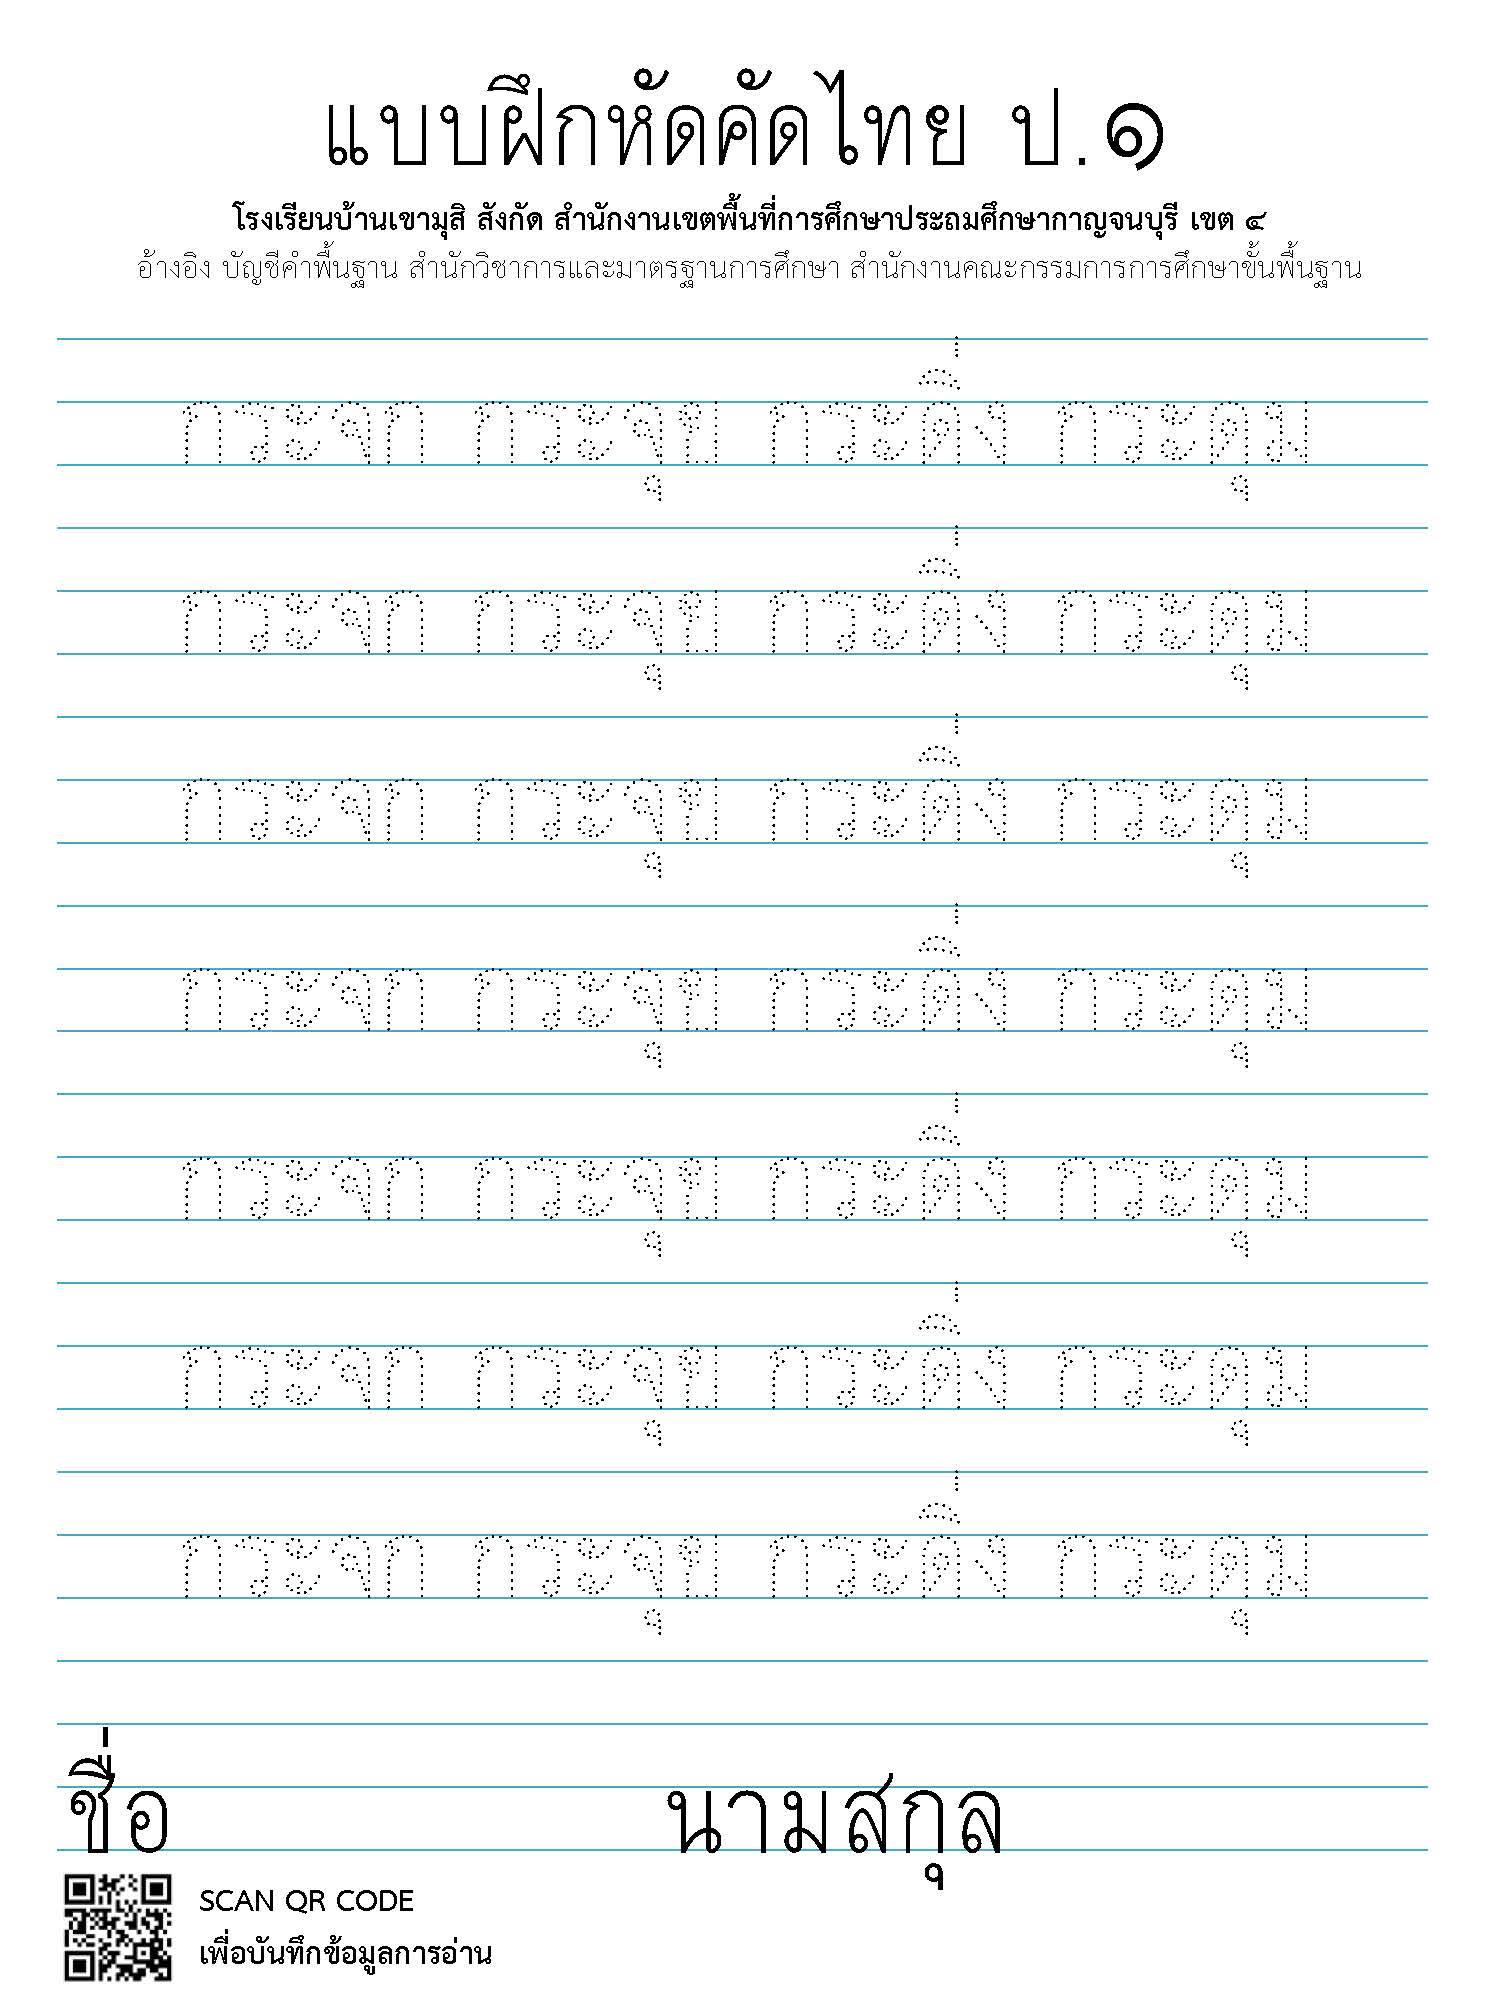 แบบฝึกหัดคัดไทย ป.๑
โรงเรียนบ้านเขามุสิ สังกัด สำนักงานเขตพื้นที่การศึกษาประถมศึกษากาญจนบุรี เขต ๔
อ้างอิง บัญชีคำพื้นฐาน สำนักวิชาการและมาตรฐานการศึกษา สำนักงานคณะกรรมการการศึกษาขั้นพื้นฐาน
กระจก กระจุบ กระดิ่ง กระดุม
กระจก กระจุบ กระดิ่ง กระดุม
กระจก กระจุบ กระดิ่ง กระดุม
กระจก กระจุบ กระดิ่ง กระดุม
กระจก กระจุบ กระดิ่ง กระดุม
กระจก กระจุบ กระดิ่ง กระดุม
กระจก กระจุบ กระดิ่ง กระดุม
ชื่อ นามสกุล
SCAN QR CODE
เพื่อบันทึกข้อมูลการอ่าน